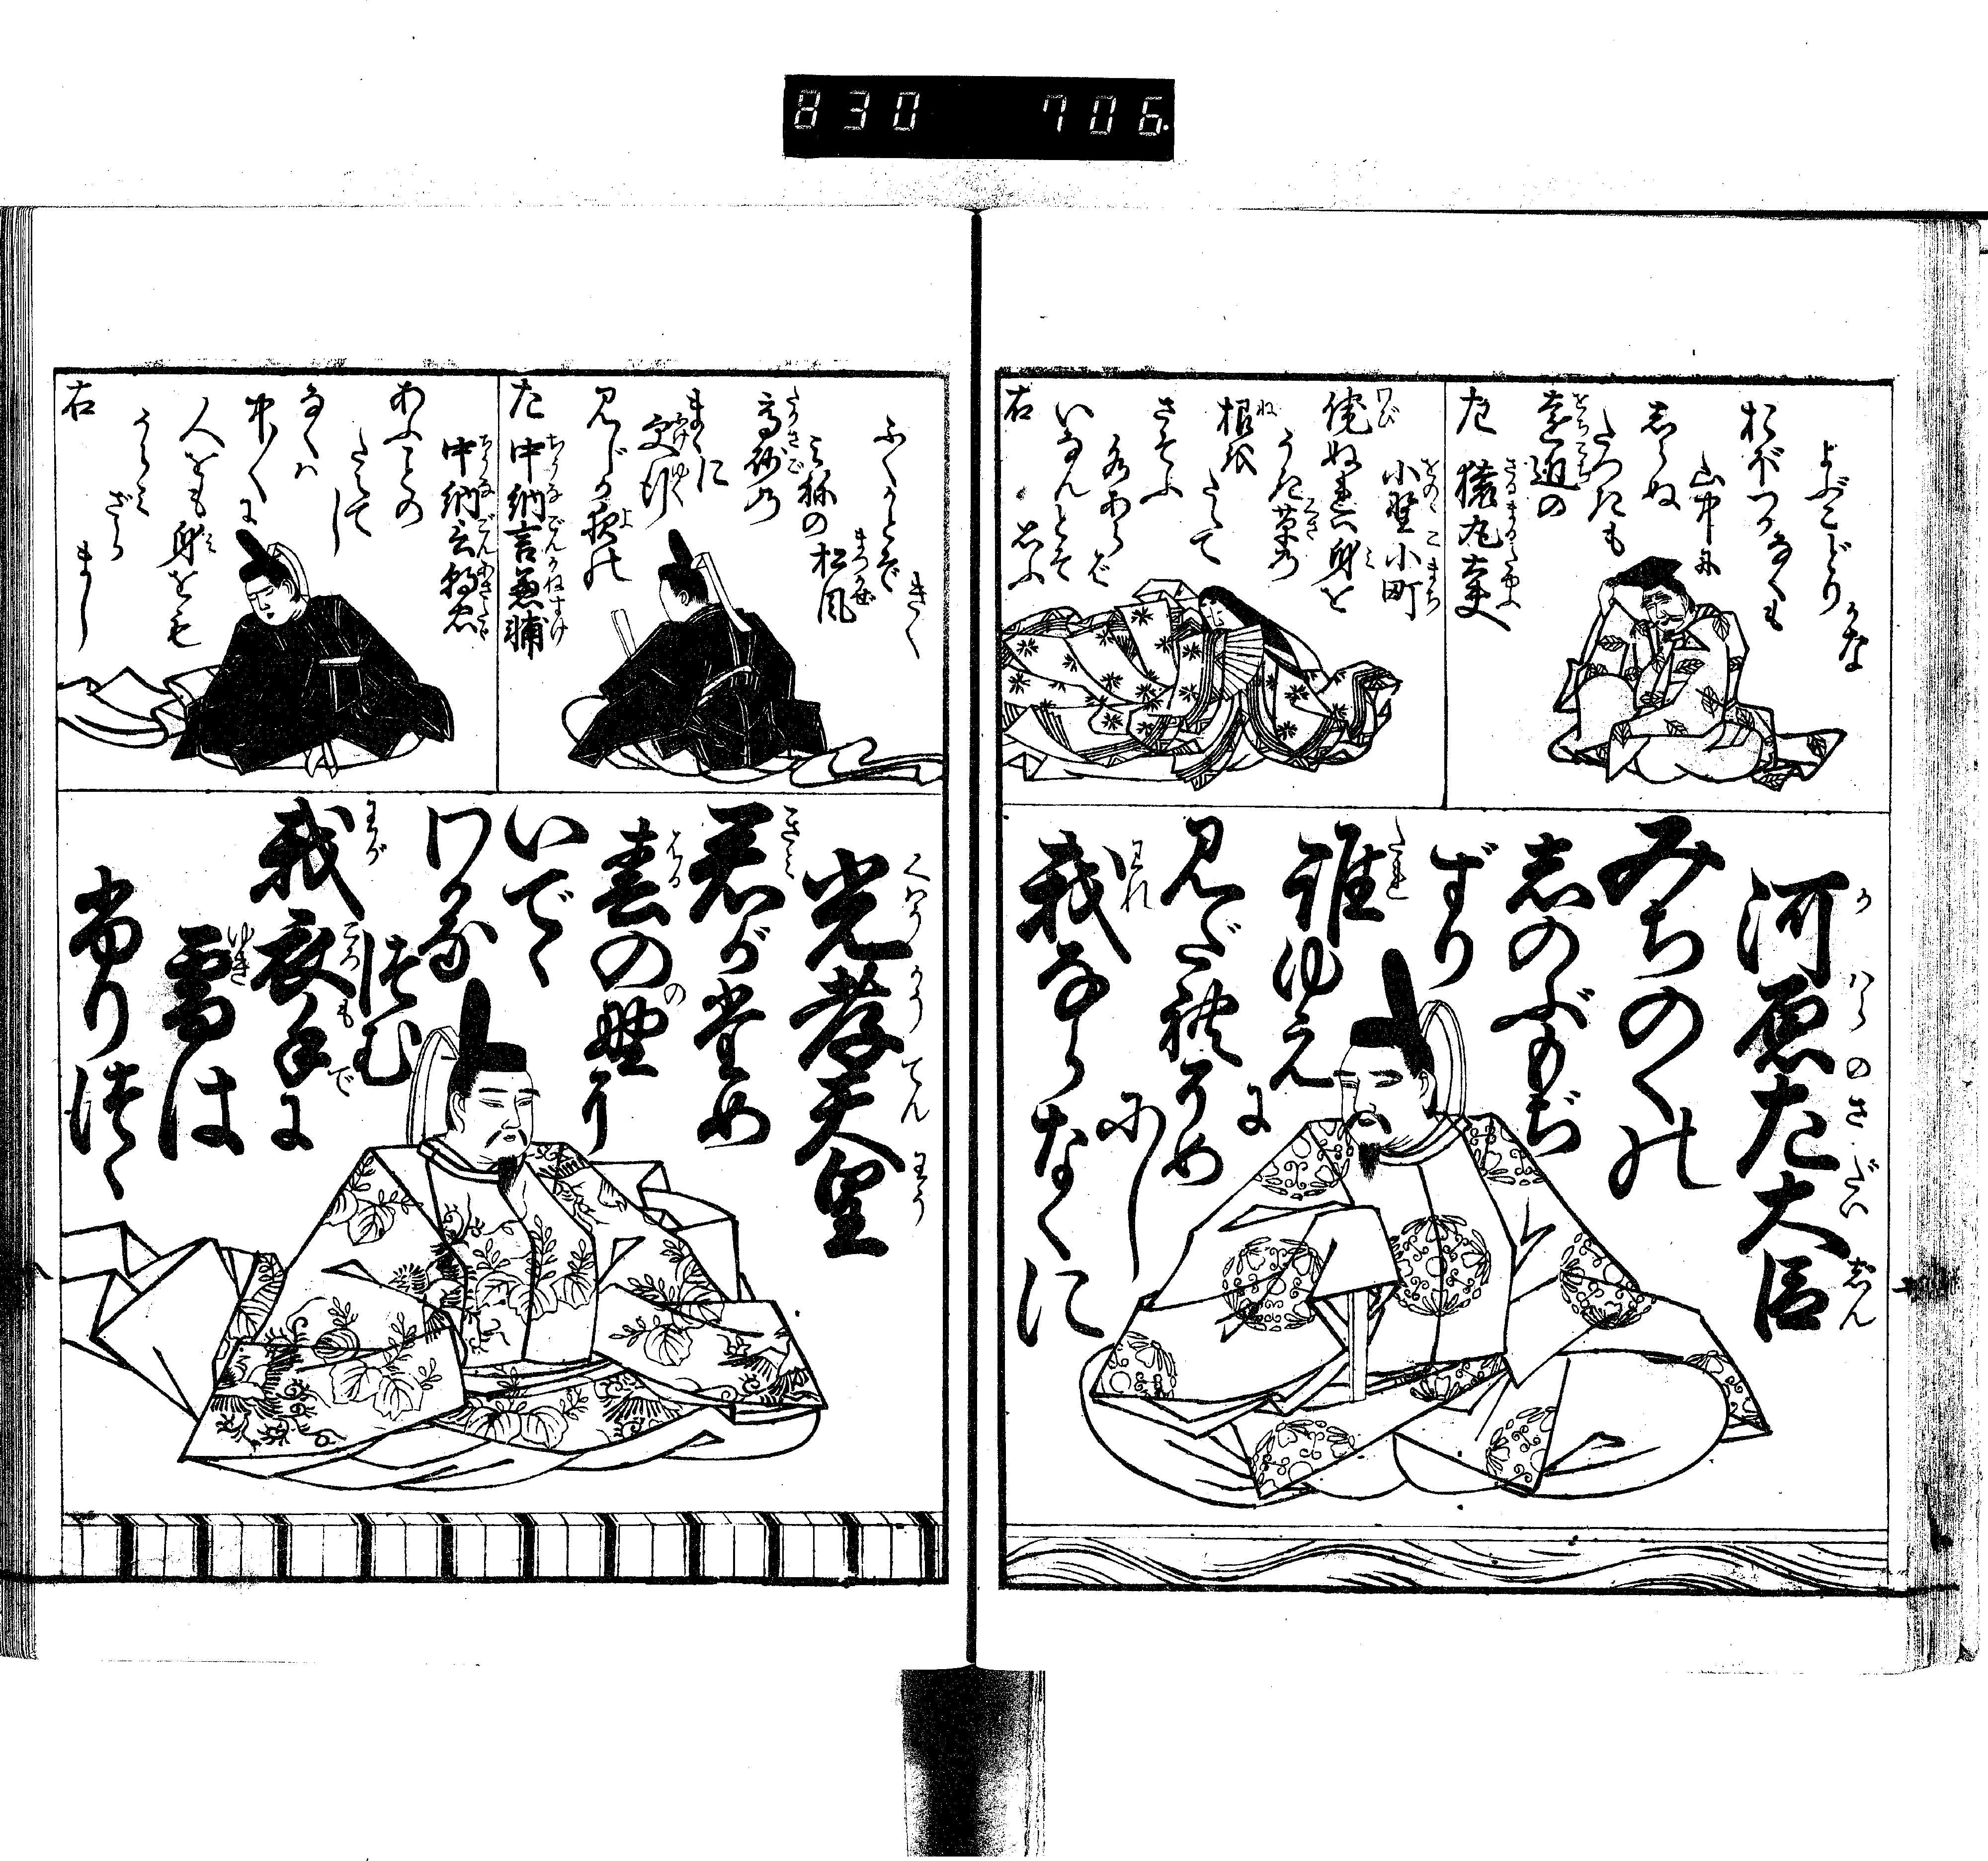 830 706
左 猿丸太夫
遠近の
たつきも
しらぬ
山中に
おぼつかなくも
よぶこどりかな
小野小町
侘ぬれば身を
うき草の
根をたえて
さそふ
水あらば
いなんとぞ
思ふ
右
河原左大臣
みちのくの
志のぶもぢ
ずり
誰ゆえに
見だれそめ
にし
我ならなくに
左 中納言兼輔
見じか夜の
更行
まゝに
高砂の
みねの松風
ふくかとぞ
きく
中納言朝忠
あふことの
たえて
し
なくハ
中〱に
人をも身をも
うらみ
ざら
まし
右
光孝天皇
君がため
春の野に
いでゝ
わかな
つむ
我衣手に
雪は
ふりつゝ